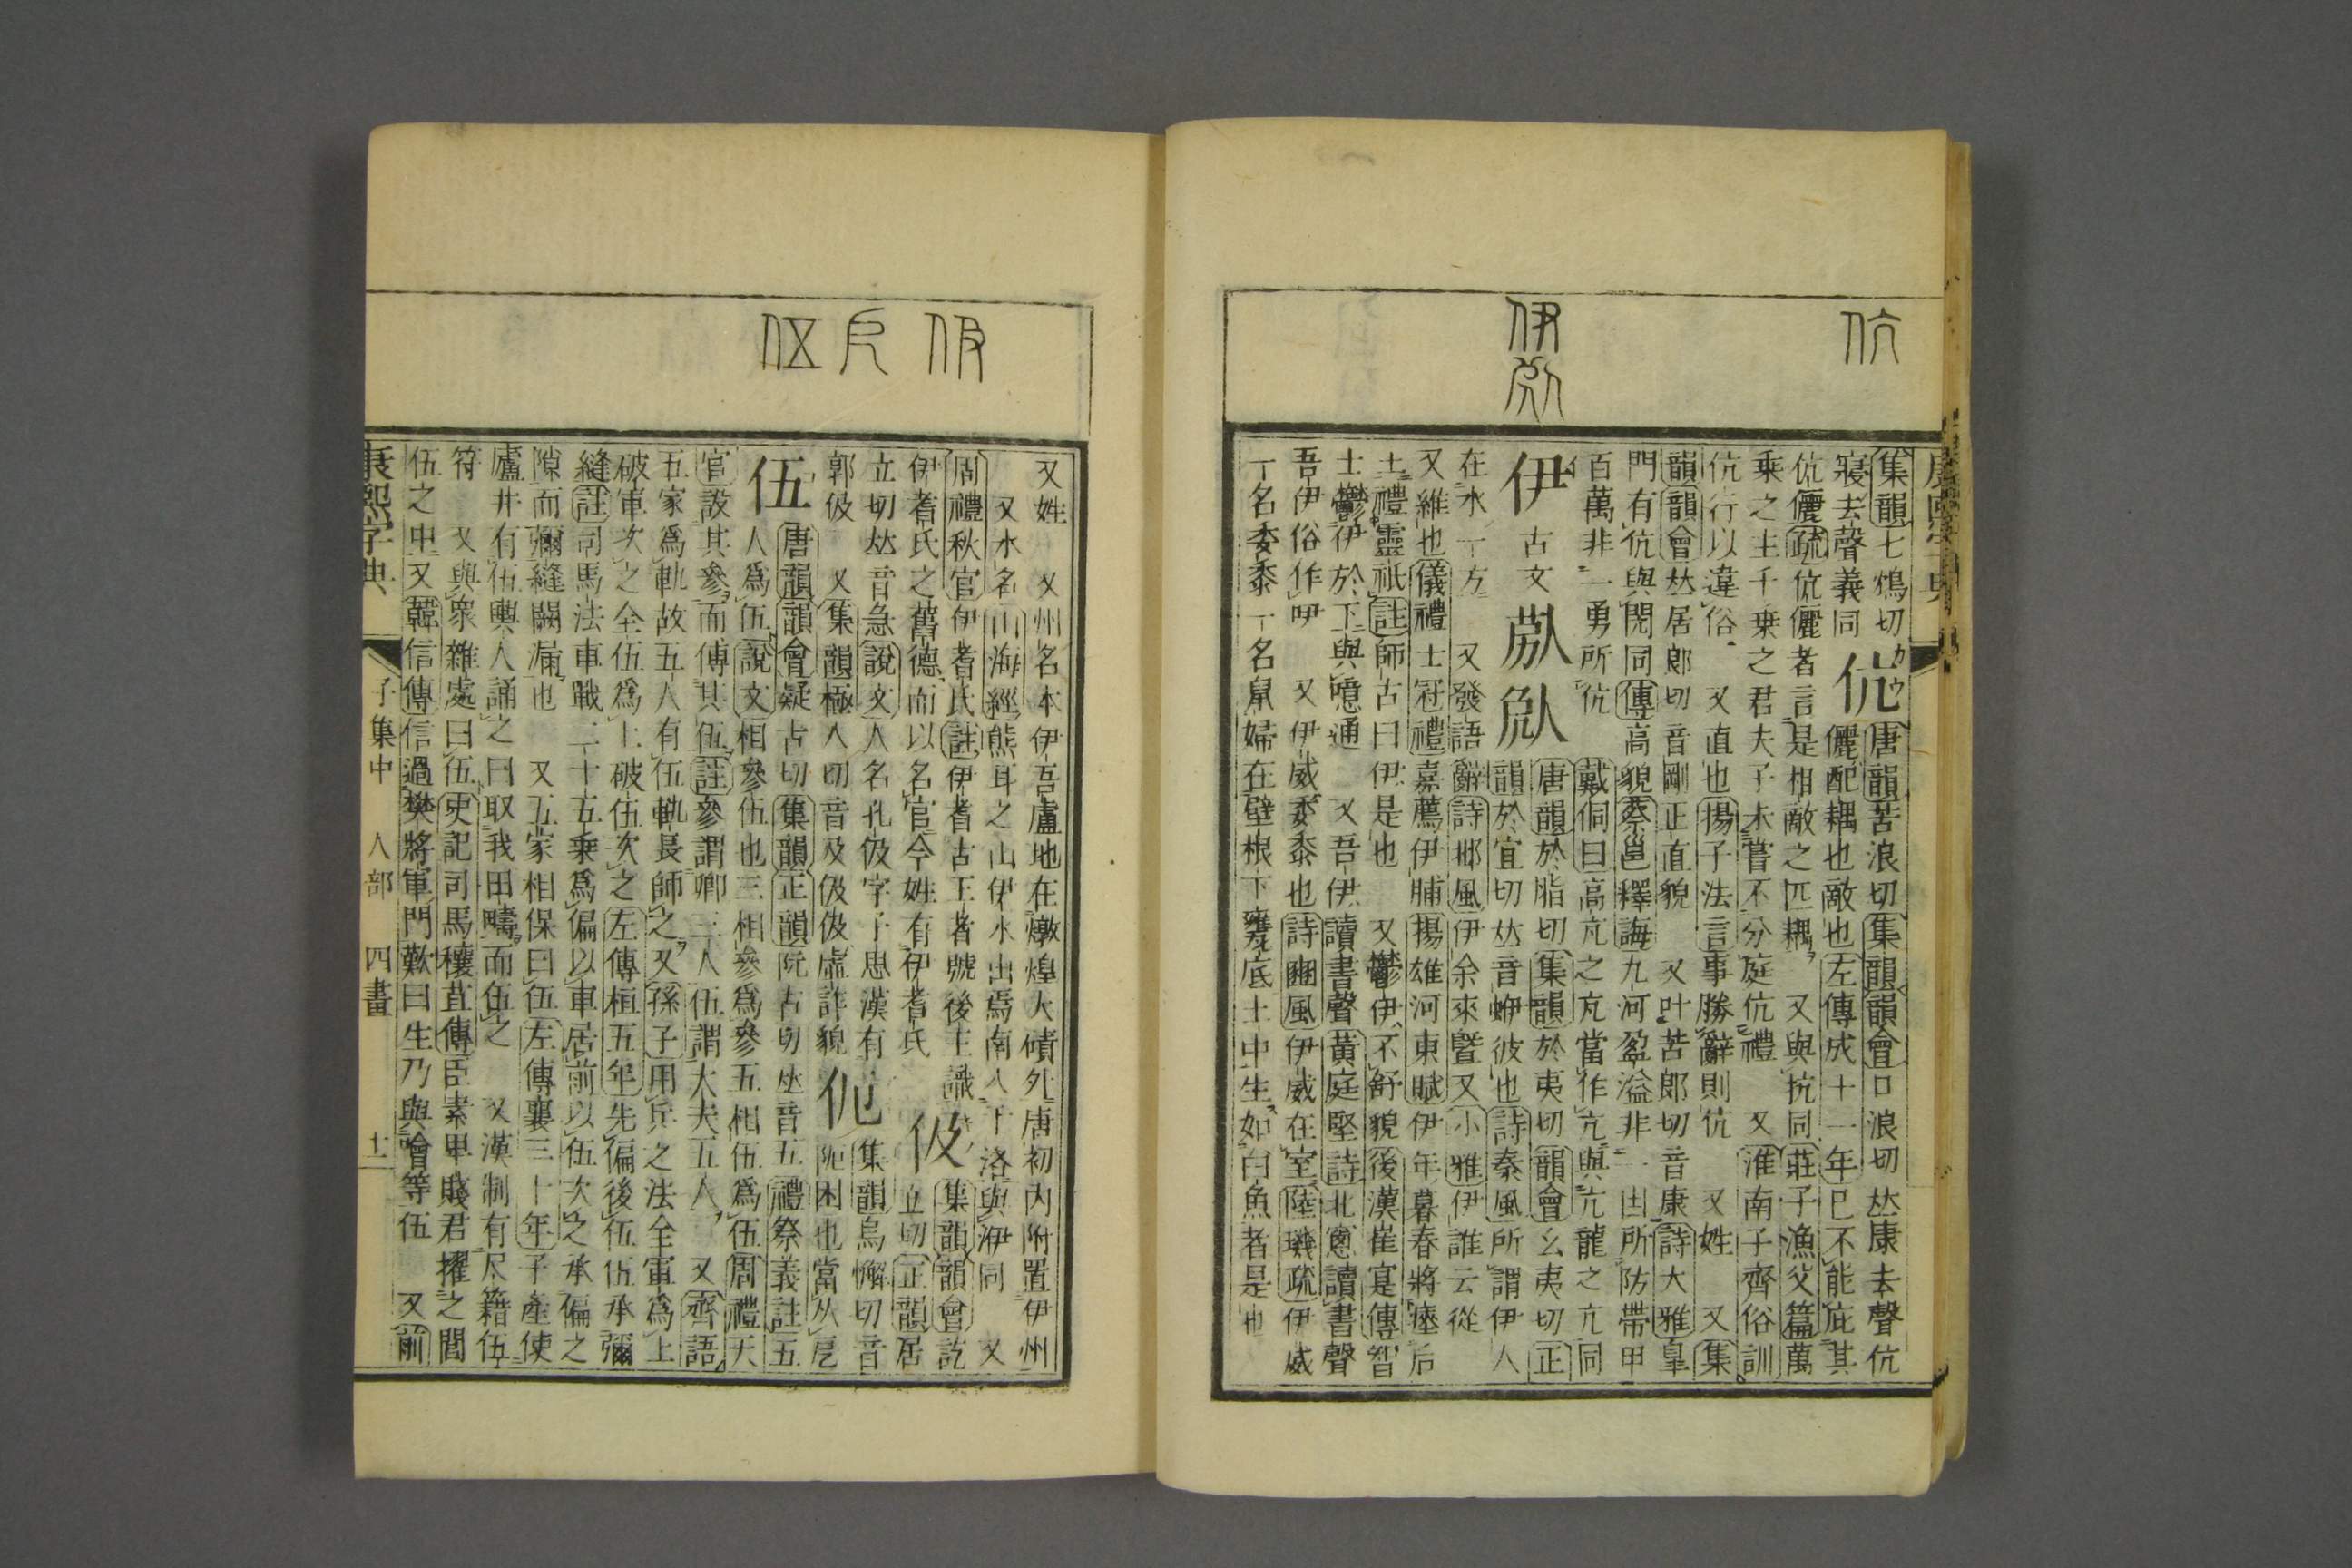 集韻七鴆切
寢去聲義同 伉 唐韻苦浪切集韻韻會口浪切𠀤康去聲伉
儷配耦也敵也左傳成十一年巳不能庇其
伉儷疏伉儷者言是相敵之匹耦 又與抗同莊子漁父篇萬
乘之主千乘之君夫子未嘗不分庭伉禮 又淮南子齊俗訓
伉行以違俗 又直也揚子法言事勝辭則伉 又姓 又集
韻韻會𠀤居郎切音剛正直貌 又叶苦郎切音康詩大雅皐
門有伉與閌同傳高貌蔡邕釋誨九河盈溢非一凷所防帶甲
百萬非一勇所伉
伊 古文 𠚍 𠇑 戴侗曰高亢之亢當作亢與亢龍之亢同
唐韻於脂切集韻於夷切韻會幺夷切正
韻於宜切𠀤音蛜彼也詩秦風所謂伊人
在水一方 又發語辭詩邶風伊余來曁又小雅伊誰云從
又維也儀禮士冠禮嘉薦伊脯揚雄河東賦伊年暮春將瘞后
土禮靈祇註師古曰伊是也 又鬱伊不舒貌後漢崔寔傳智
士鬱伊於下與噫通 又吾伊讀書聲黃庭堅詩北窻讀書聲
吾伊俗作咿 又伊威委黍也詩豳風伊威在室陸璣疏伊威
一名委黍一名鼠婦在壁根下甕底土中生如白魚者是也
又姓 又州名本伊吾盧地在燉煌大磧外唐初内附置伊州
又水名山海經熊耳之山伊水出焉南入于洛與洢同 又
周禮秋官伊耆氏註伊耆古王者號後王識
伊耆氏之舊德而以名官今姓有伊耆氏 伋 集韻韻會訖
立切正韻居
立切𠀤音急說文人名孔伋字子思漢有
郭伋 又集韻極入切音及伋伋虛詐貌 㐵 集韻烏懈切音
阨困也當从戹
伍 唐韻韻會疑古切集韻正韻阮古切𠀤音五禮祭義註五
人爲伍說文相參伍也三相參爲參五相伍爲伍周禮天
官設其參而傅其伍註參謂卿三人伍謂大夫五人 又齊語
五家爲軌故五人有伍軌長師之又孫子用兵之法全軍爲上
破軍次之全伍爲上破伍次之左傳桓五年先偏後伍伍承彌
縫註司馬法車戰二十五乘爲偏以車居前以伍次之承偏之
隙而彌縫闕漏也 又五家相保曰伍左傳襄三十年子產使
廬井有伍輿人誦之曰取我田疇而伍之 又漢制有尺籍伍
符 又與衆雜處曰伍史記司馬穰苴傳臣素卑賤君擢之閭
伍之中又韓信傳信過樊將軍門歎曰生乃與噲等伍 又前
康熙字典 子集中 人部 四畫 十一